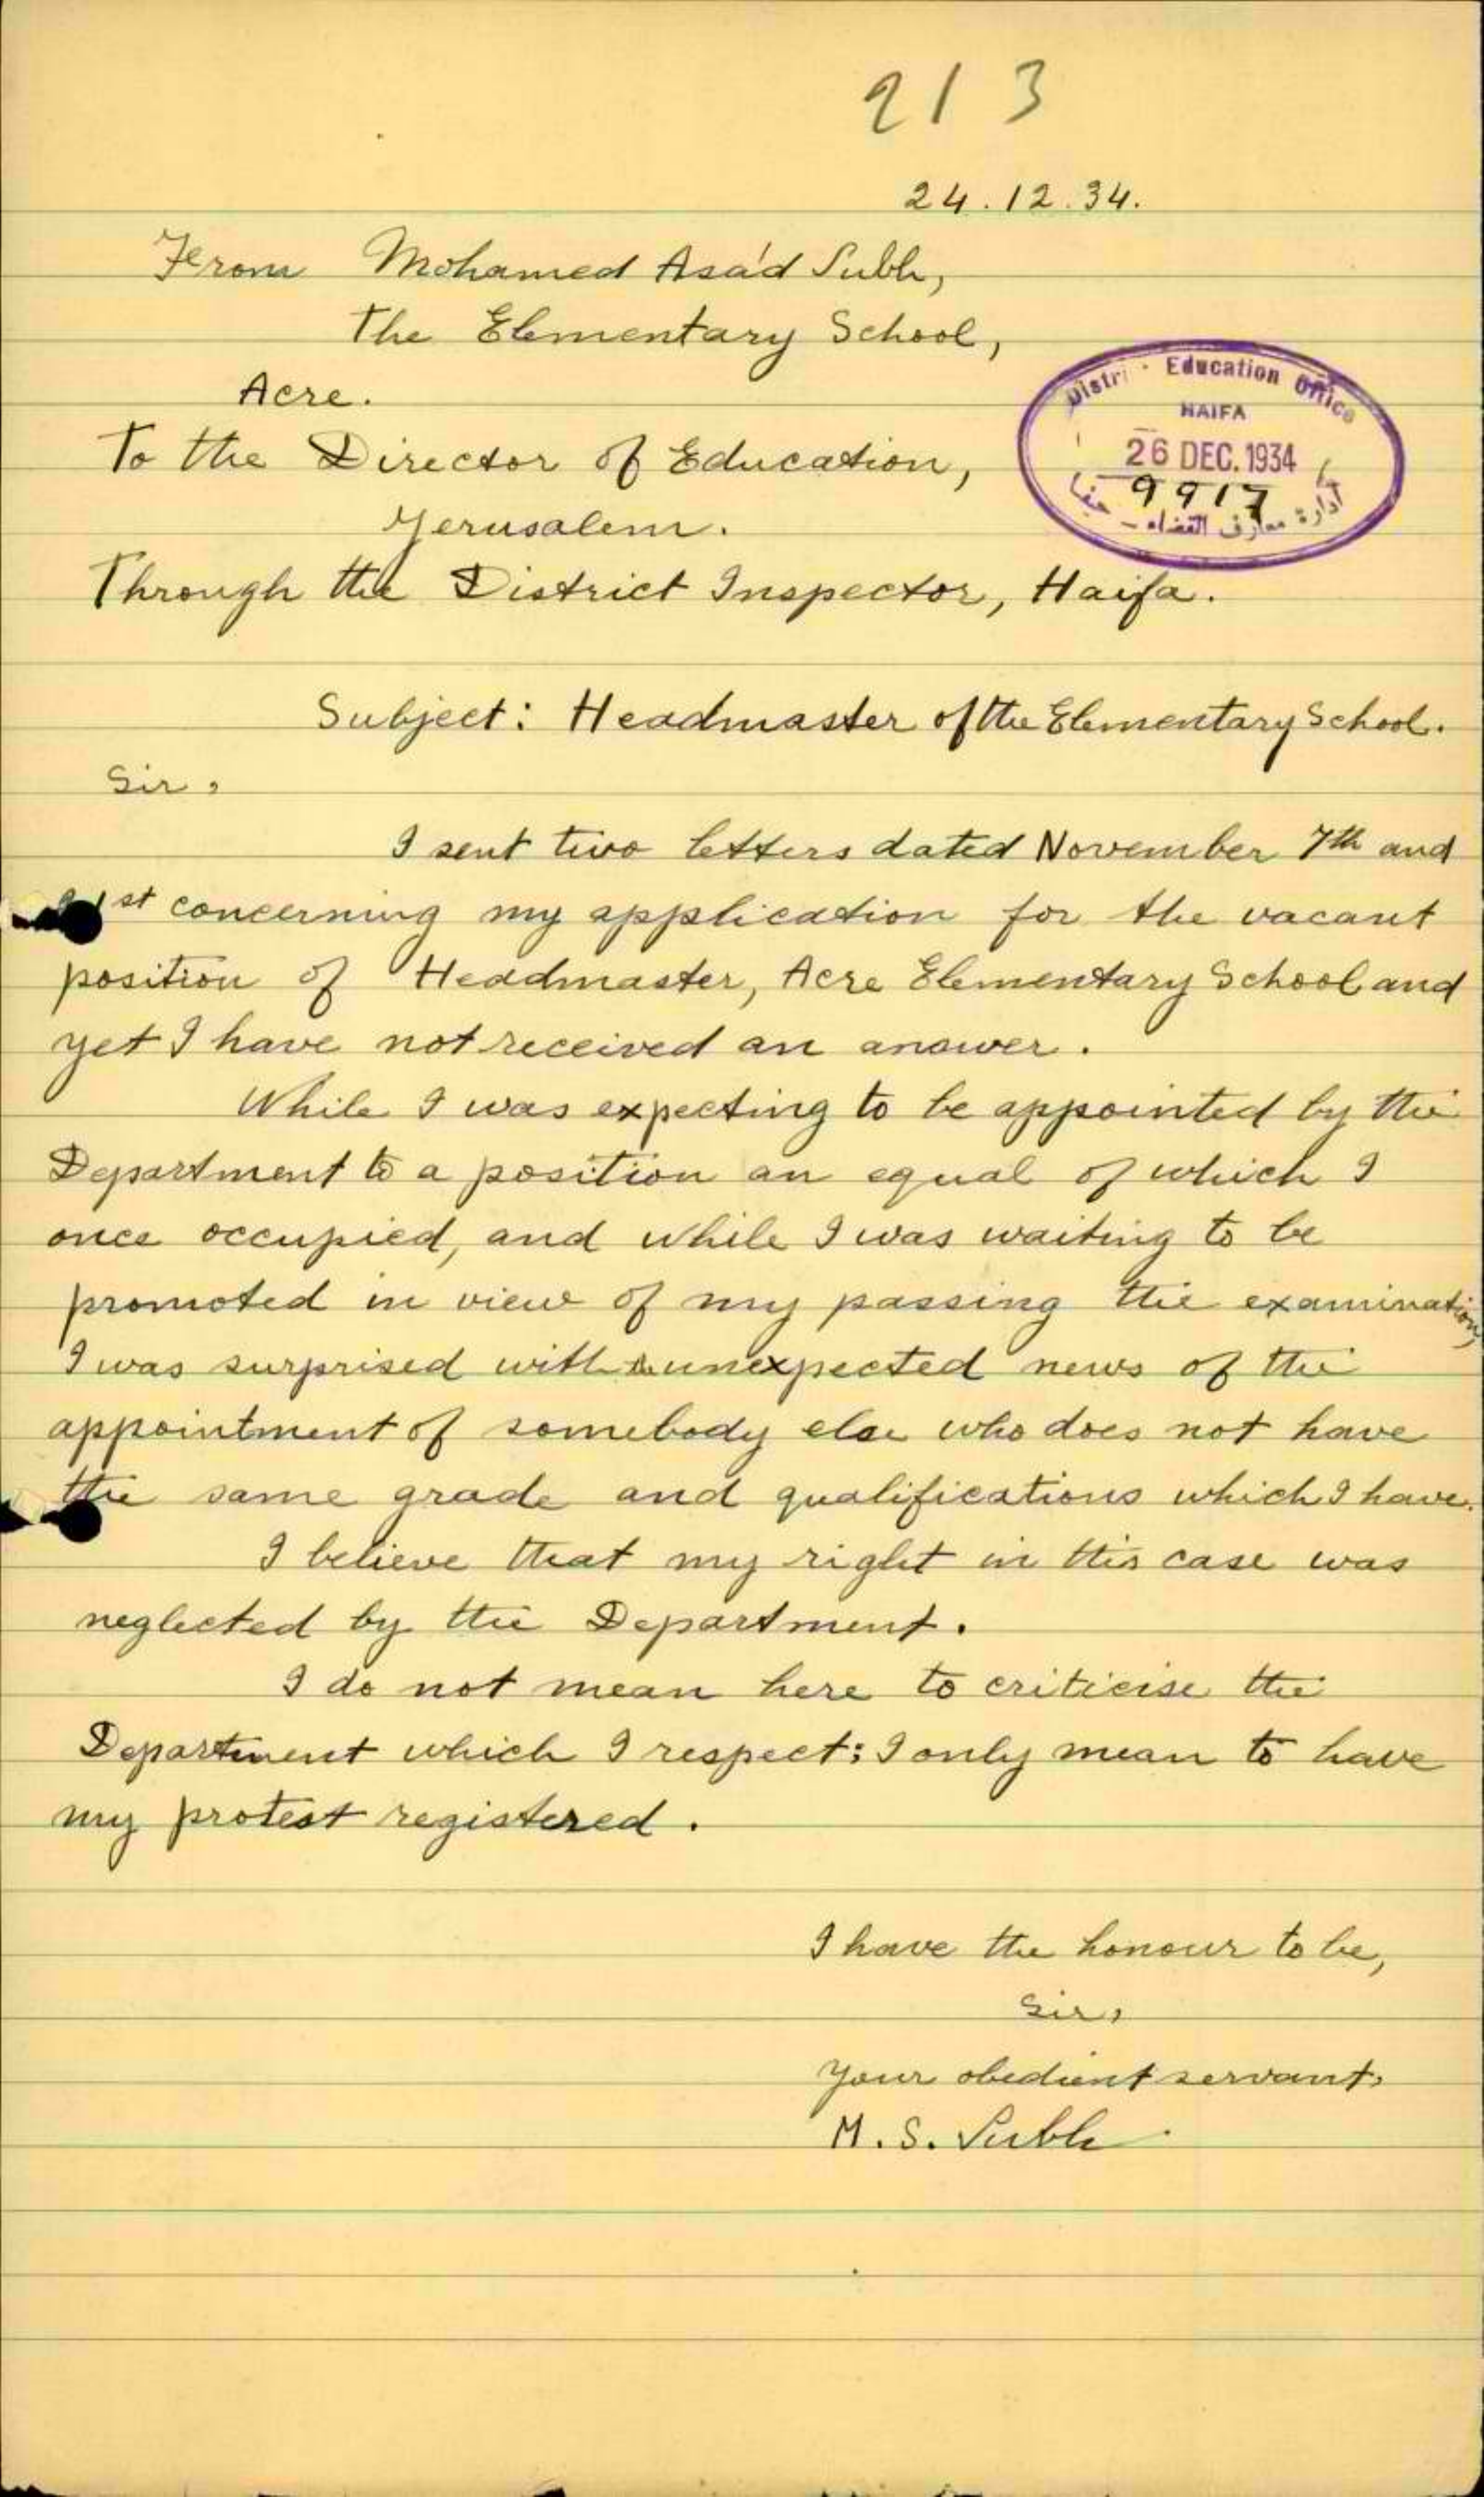 213
24.12.34.
From Mohamed Asa'd Subh,
The Elementary School,
Acre.
To the Director of Education,
Jerusalem.
Through the District Inspector, Haifa.
Distri Education Office
HAIFA
26 DEC. 1934
9917
ادارة معارف القضاء - حيفا
Subject: Headmaster of the Elementary School.
Sir,
I sent two letters dated November 7th and
1st concerning my application for the vacant
position of Headmaster, Acre Elementary School and
yet I have not received an answer.
While I was expecting to be appointed by the
Department to a position an equal of which I
once occupied, and while I was waiting to be
promoted in view of my passing the examination,
I was surprised with unexpected news of the
appointment of somebody else who does not have
the same grade and qualifications which I have.
I believe that my right in this case was
neglected by the Department.
I do not mean here to criticise the
Department which I respect; I only mean to have
my protest registered.
I have the honour to be,
Sir,
Your obedient servant,
M. S. Subh.